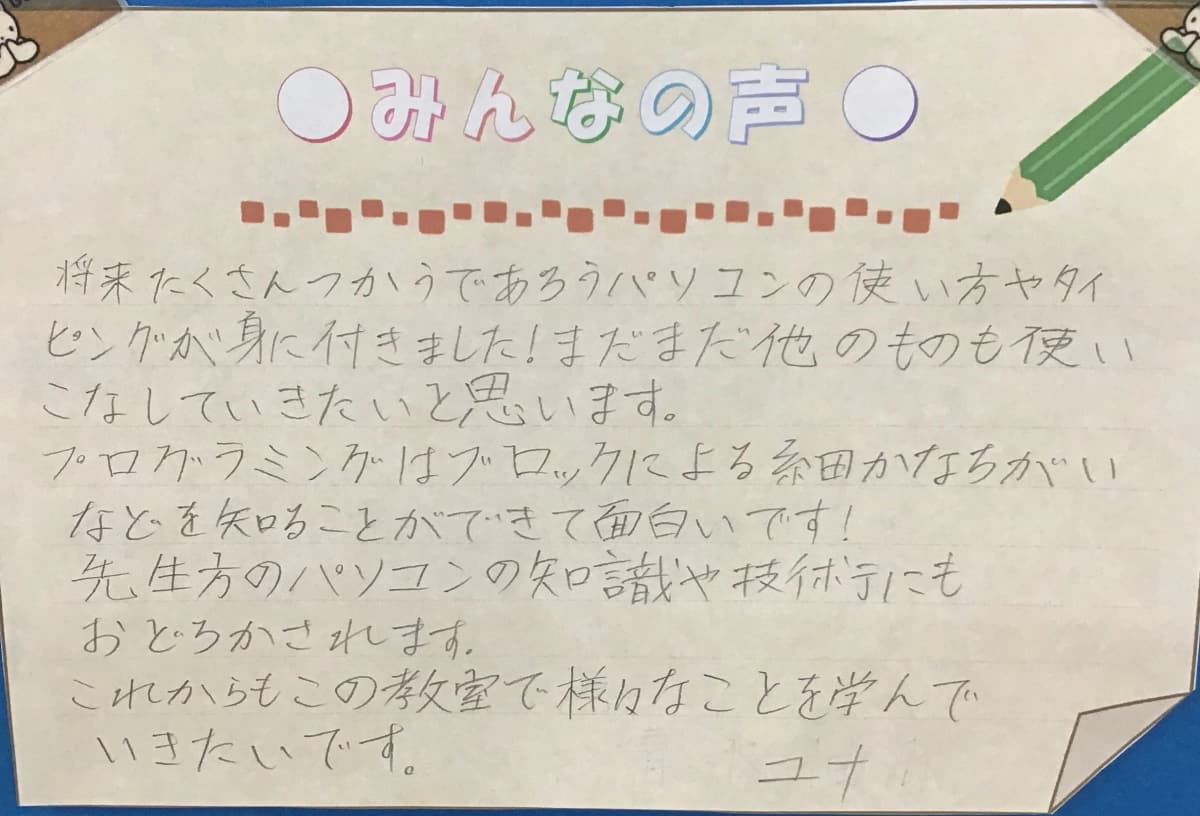 ●みんなの声●
将来たくさんつかうであろうパソコンの使い方やタイ
ピングが身に付きました!まだまだ他のものも使い
こなしていきたいと思います。
プログラミングはブロックによる細かなちがい
などを知ることができて面白いです!
先生方のパソコンの知識や技術にも
おどろかされます。
これからもこの教室で様々なことを学んで
いきたいです。
ユナ